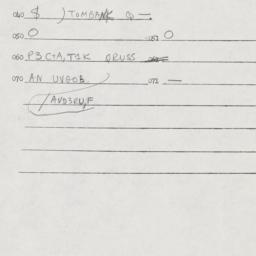 040 $ ) TOMBANK Q —
050 O 051 O
060 P3 C+A, T1K QRUSS
070 AN UVEOB 072 —
/AVD3RU,F